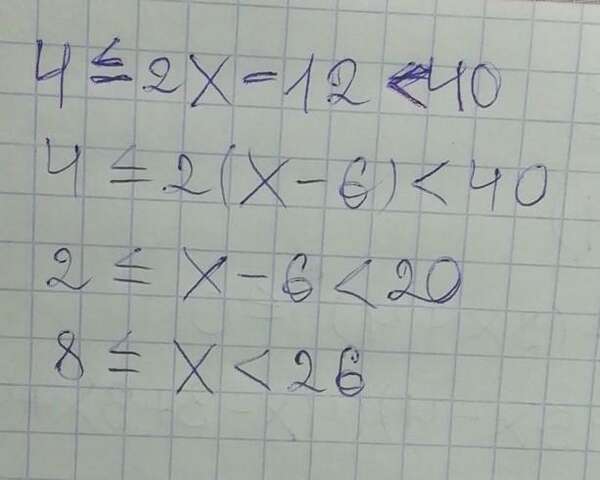 4 ≤ 2x - 12 < 40
4 ≤ 2(x - 6) < 40
2 ≤ x - 6 < 20
8 ≤ x < 26